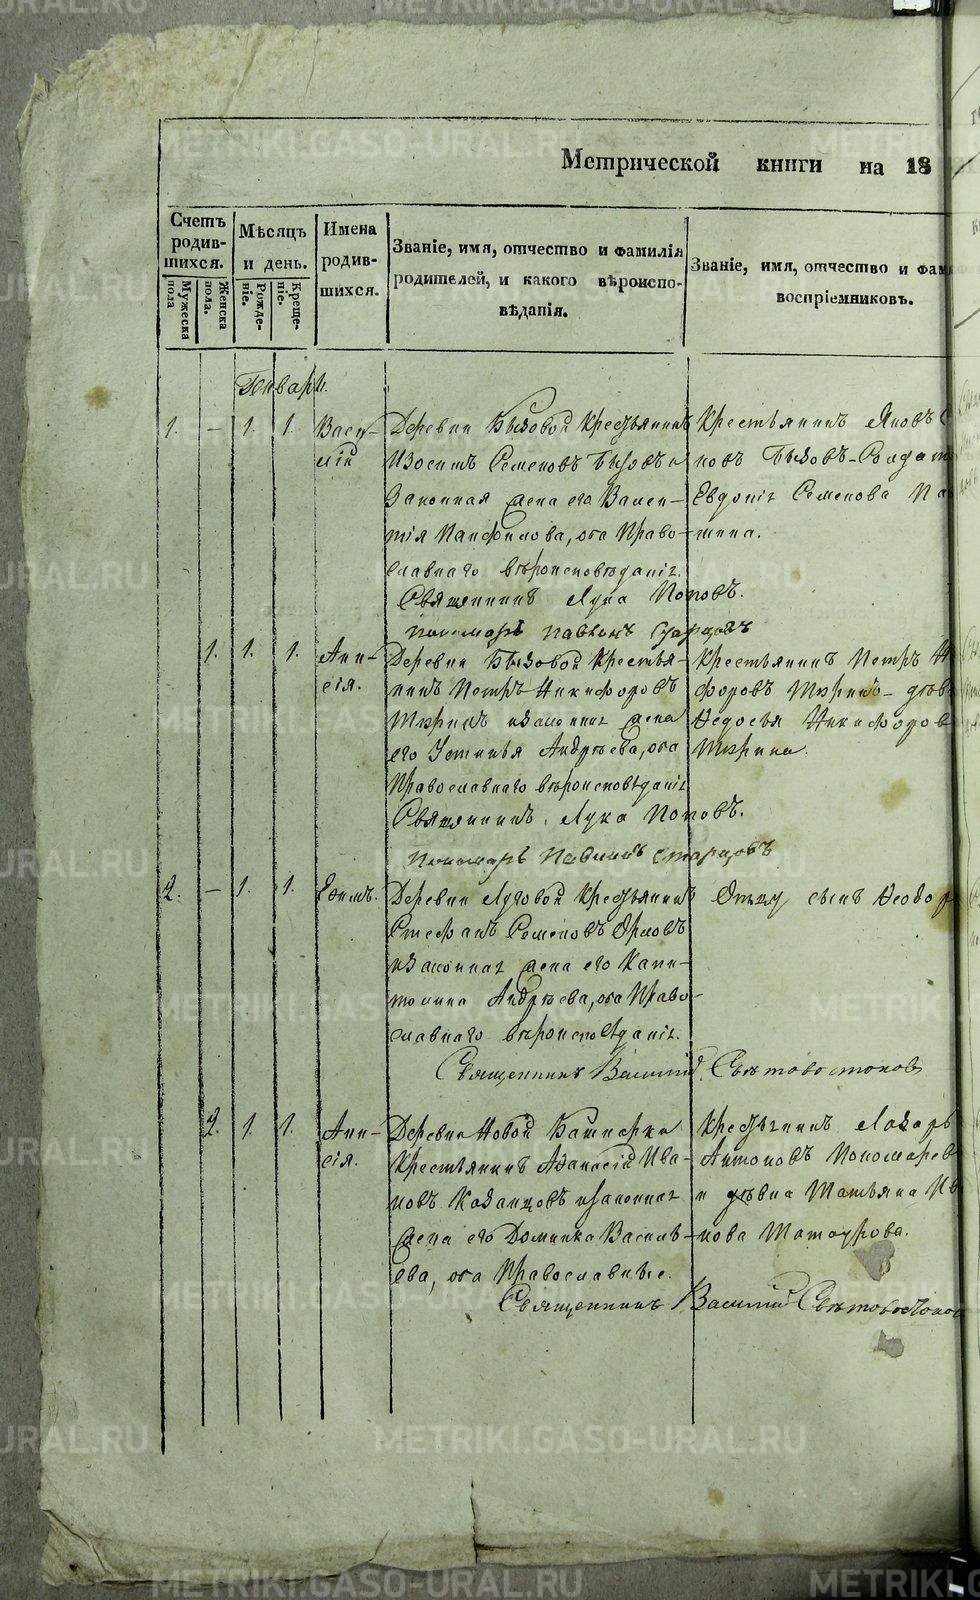 Метрической книги на 18
Счетъ родив-шихся.
Мужеска пола
Женска пола.
Мѣсяцъ и день.
Рожде-ніе.
Креще-ніе.
Имена родив-шихся.
Званіе, имя, отчество и фамилія
родителей, и какого вѣроиспо-
вѣданія.
Званіе, имя, отчество и фам
воспріемниковъ.
Генварь.
1. — 1. 1. Васи-
лій
Деревни Бызовой Крестьянинъ
Изосимъ Семеновъ Бызовъ и
Законная жена его Вален-
тія Панфилова, оба Право-
славнаго вѣроисповѣданія.
Священникъ Лука Поповъ.
пономарь Павлинъ Старцовъ
Крестьянинъ Яковъ С
новъ Бызовъ - Солдат
Евдокія Семенова Па
шина.
1. 1. 1. Ани-
сія.
Деревни Бызовой Крестья-
нинъ Петръ Никифоровъ
Тюринъ и законная жена
его Устинья Андрѣева, оба
Православнаго вѣроисповѣданія
Священникъ Лука Поповъ.
Пономарь Павлинъ Старцовъ
Крестьянинъ Петръ Ни
форовъ Тюринъ - дѣв
Ѳедосья Никифоров
Тюрина.
2. — 1. 1. Ефимъ.
Деревни Луговой Крестьянинъ
Стефанъ Семеновъ Орловъ
и законная жена его Капи-
толина Андрѣева, оба Право-
славнаго вѣроисповѣданія.
Священникъ Василій Свѣтовостоковъ
сынъ Ѳеодор
2. 1. 1. Ани-
сія.
Деревни Новой Башкарки
Крестьянинъ Аѳанасій Ива-
новъ Казанцовъ и законная
жена его Домника Василь-
ева, оба Православные.
Священникъ Василій Свѣтовостоков
Крестьянинъ Лазарь
Антоновъ Пономарев
и дѣвка Татьяна Ив
нова Татаурова.